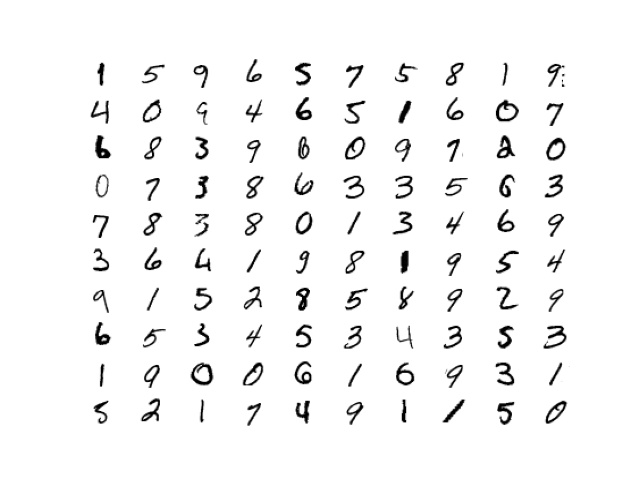 1 5 9 6 5 7 5 8 1 9
4 0 9 4 6 5 1 6 0 7
6 8 3 9 6 0 9 7 2 0
0 7 3 8 6 3 3 5 6 3
7 8 3 8 0 1 3 4 6 9
3 6 4 1 9 8 1 9 5 4
9 1 5 2 8 5 8 9 2 9
6 5 3 4 5 3 4 3 5 3
1 9 0 0 6 1 6 9 3 1
5 2 1 7 4 9 1 1 5 0